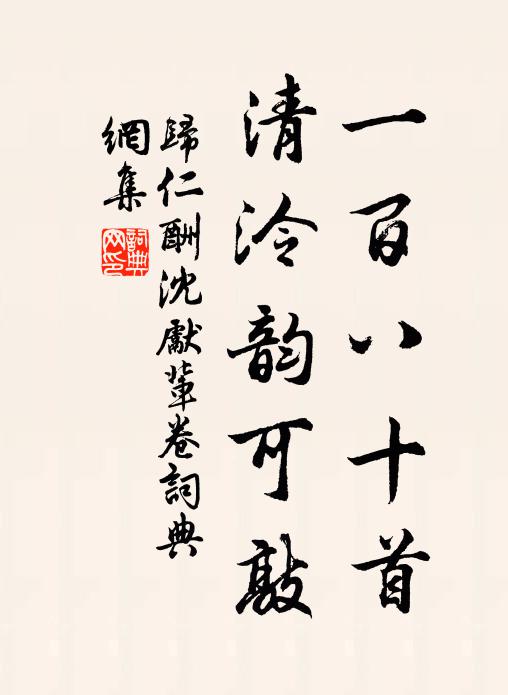 一百八十首
清泠韵可敲
歸仁酬沈獻輩卷詞典
網集
詞典
网印